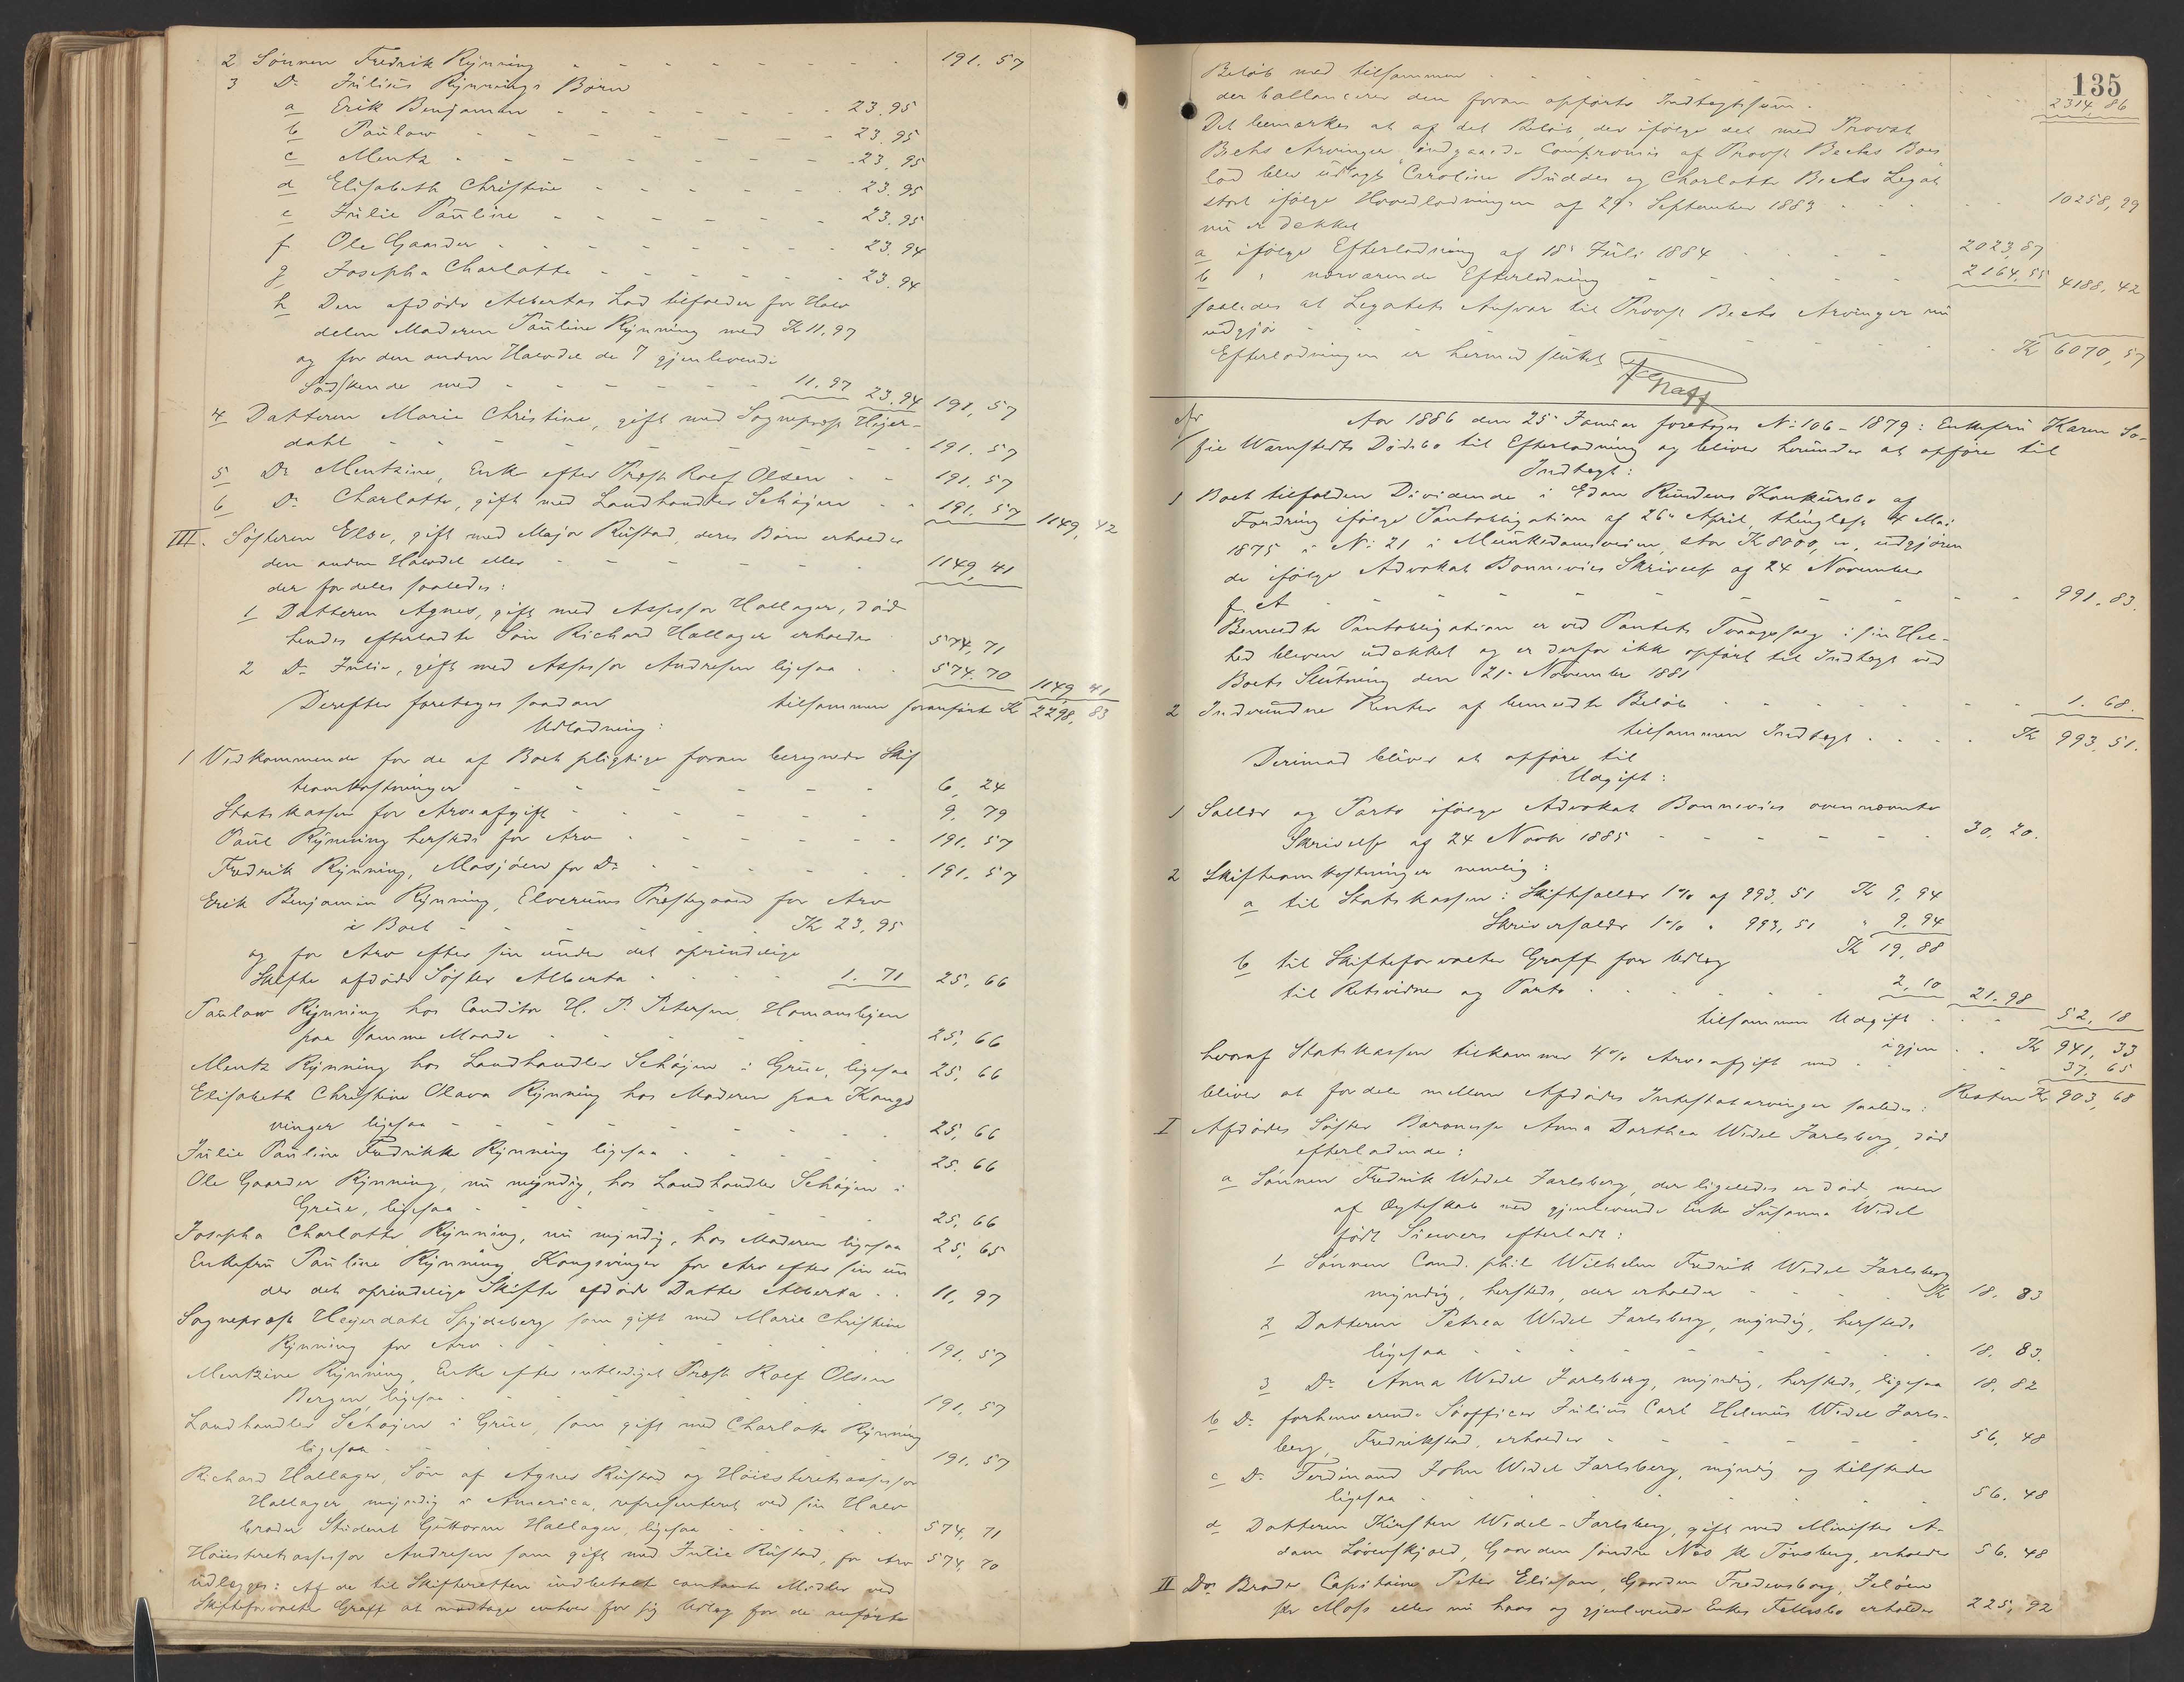 2 Sönnen Fredrik Rynning - - - 191. 57
3 Do Julius Rynnings Börn
a Erik Benjamin - - - 23.95
b Paulaw - - - 23.95
c Mentz - - - 23.95
d Elisabeth Christine - - - 23.95
e Julie Pauline - - - 23.95
f Ole Gaarder - - - 23.94
g Josepha Charlotte - - - 23.94
h Den afdöde Albertas Lod tilfalder for Halv
delen Moderen Pauline Rynning med Kr 11.97
og for den anden Halvdel de 7 gjenlevende
Södskende med - - - 11.97 23.94 191, 57
4 Datteren Marie Christine, gift med Sognepræst Heyer-
dahl - - - 191. 57
5 Do Mentzine, Enke efter Præst Rolf Olsen - - 191. 57
6 Do Charlotte, gift med Landhandler Schöyen - - 191. 57 1149, 42
III. Söstren Else, gift med Major Rustad, deres Börn erholder
den anden Halvdel eller - - - 1149, 41
der fordeles saaledes:
1 Datteren Agnes, gift med Assessor Hallager, död
hendes efterladte Sön Richard Hallager erholder 574, 71
2 Do Julie, gift med Assessor Andresen ligesaa - 574. 70 1149, 41
tilsammen foranförte Kr 2298, 83
Derefter foretages saadan
Udlodning:
1 Vedkommende for de af Boet pligtige foran beregnede Skif
teomkostninger - - - 6, 24
Statskassen for Arveafgift - - - 9, 79
Paul Rynning hersteds for Arv - - - 191. 57
Fredrik Rynning, Mosjöen for Do - - - 191. 57
Erik Benjamin Rynning, Elverums Præstegaard for Arv
i Boet - - - Kr 23, 95
og for Arv efter sin under det oprindelige
Skifte afdöde Söster Alberta - - - 1. 71 25, 66
Paulaw Rynning hos Conditor H. P. Petersen, Homansbyen
paa samme Maade - - - 25, 66
Mentz Rynning hos Landhandler Schöyen i Grue, ligesaa 25, 66
Elisabeth Christine Olava Rynning hos Moderen paa Kongs
vinger ligesaa - - - 25, 66
Julie Pauline Fredrikke Rynning ligesaa - - - 25. 66
Ole Gaarder Rynning, nu myndig, hos Landhandler Schöyen i
Grue, ligesaa - - - 25, 66
Josepha Charlotte Rynning, nu myndig, hos Moderen ligesaa 25, 65
Enkefru Pauline Rynning Kongsvinger for Arv efter sin un
der det oprindelige Skifte afdöde Datter Alberta - - 11, 97
Sognepræst Heyerdahl Spydeberg som gift med Marie Christine
Rynning for Arv - - - 191, 57
Mentzine Rynning, Enke efter entlediget Præst Rolf Olsen
Bergen, ligesaa - - - 191. 57
Landhandler Schöyen i Grue, som gift med Charlotte Rynning
ligesaa - - - 191. 57
Richard Hallager, Sön af Agnes Rustad og Höiesteretsassessor
Hallager, myndig i America, repræsenteret ved sin Halv
broder Student Guttorm Hallager, ligesaa - - - 574, 71
Höiesteretsassessor Andresen som gift med Julie Rustad, for Arv 574, 70
udlægges: Af de til Skifteretten indbetalte contante Midler ved
Skifteforvalter Graff at modtage enhver for sig Udlæg for de anförte
135
Belöb med tilsammen - - - 2314, 86
der ballancerer den foran opförte Indtægtssum.
Det bemærkes at af det Belöb, der ifölge det med Provst
Bechs Arvinger indgaaede Compromis af Provst Bechs Boes
lod blev udlagt "Caroline Buddes og Charlotte Bechs Legat"
stort ifölge Hovedlodningen af 29de September 1883 - - - 10258, 99
nu er dækket
a ifölge Efterlodning af 18de Juli 1884 - - - 2023, 87
b " nærværende Efterlodning - - - 2164, 55 4188, 42
saaledes at Legatets Ansvar til Provst Bechs Arvinger nu
udgjör - - - Kr 6070, 57
Efterlodningen er hermed sluttet
Graff
Ar Aar 1886 den 25de Januar foretoges No 106 - 1879: Enkefru Karen So-
fie Warnstedts Dödsbo til Efterlodning og bliver herunder at opföre til
Indtægt:
1 Boet tilfalden Dividende i Edan Rundens Konkursbo af
Fordring ifölge Pantobligation af 26de April, thinglæst 4 Mai
1875 i No 21 i Munkedamsveien, stor Kr 8000, ", udgjören
de ifölge Advokat Bonnevies Skrivelse af 24 November
f. A - - - 991. 83.
Bemeldte Pantobligation er ved Pantets Tvangssalg i sin Hel-
hed bleven udækket og er derfor ikke opfört til Indtægt ved
Boets Slutning den 21de November 1881
2 Indvundne Renter af bemeldte Belöb - - - 1. 68.
tilsammen Indtægt - - - Kr 993. 51.
Derimod bliver at opföre til
Udgift:
1 Sallær og Porto ifölge Advokat Bonnevies ovennævnte
Skrivelse af 24 Novbr 1885 - - - 30, 20.
2 Skifteomkostninger nemlig:
a til Statskassen: Skiftesallær 1% af 993. 51 Kr 9, 94
Skriversalær 1% " 993, 51 " 9. 94
Kr 19, 88
b til Skifteforvalter Graff for Udlæg
til Retsvidner og Porto - - - 2, 10 21. 98
tilsammen Udgift - - - 52, 18
igjen - - Kr 941, 33
hvoraf Statskassen tilkommer 4% Arveafgift med - - - 37, 65
Resten Kr 903, 68
bliver at fordele mellem Afdödes Intestatarvinger saaledes:
I Afdödes Söster Baronesse Anna Dorthea Wedel Jarlsberg, död
efterladende:
a Sönnen Fredrik Wedel Jarlsberg, der ligeledes er död, men
af Ægteskab med gjenlevende Enke Susanna Wedel
födt Siewers efterladt:
1 Sönnen Cand. phil Wilhelm Fredrik Wedel Jarlsberg
myndig, hersteds, der erholder - - - Kr 18. 83
2 Datteren Petrea Wedel Jarlsberg, myndig, hersteds
ligesaa - - - 18. 83.
3 Do Anna Wedel Jarlsberg, myndig, hersteds, ligesaa 18, 82
b Do forhenværende Söofficer Julius Carl Helenus Wedel Jarls-
berg, Fredrikstad, erholder - - - 56, 48
c Do Ferdinand John Wedel Jarlsberg, myndig og tilstede
ligesaa - - - 56. 48
d Datteren Kirsten Wedel-Jarlsberg, gift med Minister A-
dam Lövenskjold, Gaarden söndre Næs pr Tönsberg, erholder 56. 48
II Do Broder Capitaine Peter Eliesen, Gaarden Fredensborg, Jelöen
pr Moss eller nu hans og gjenlevende Enkes Fællesbo erholder 225, 92